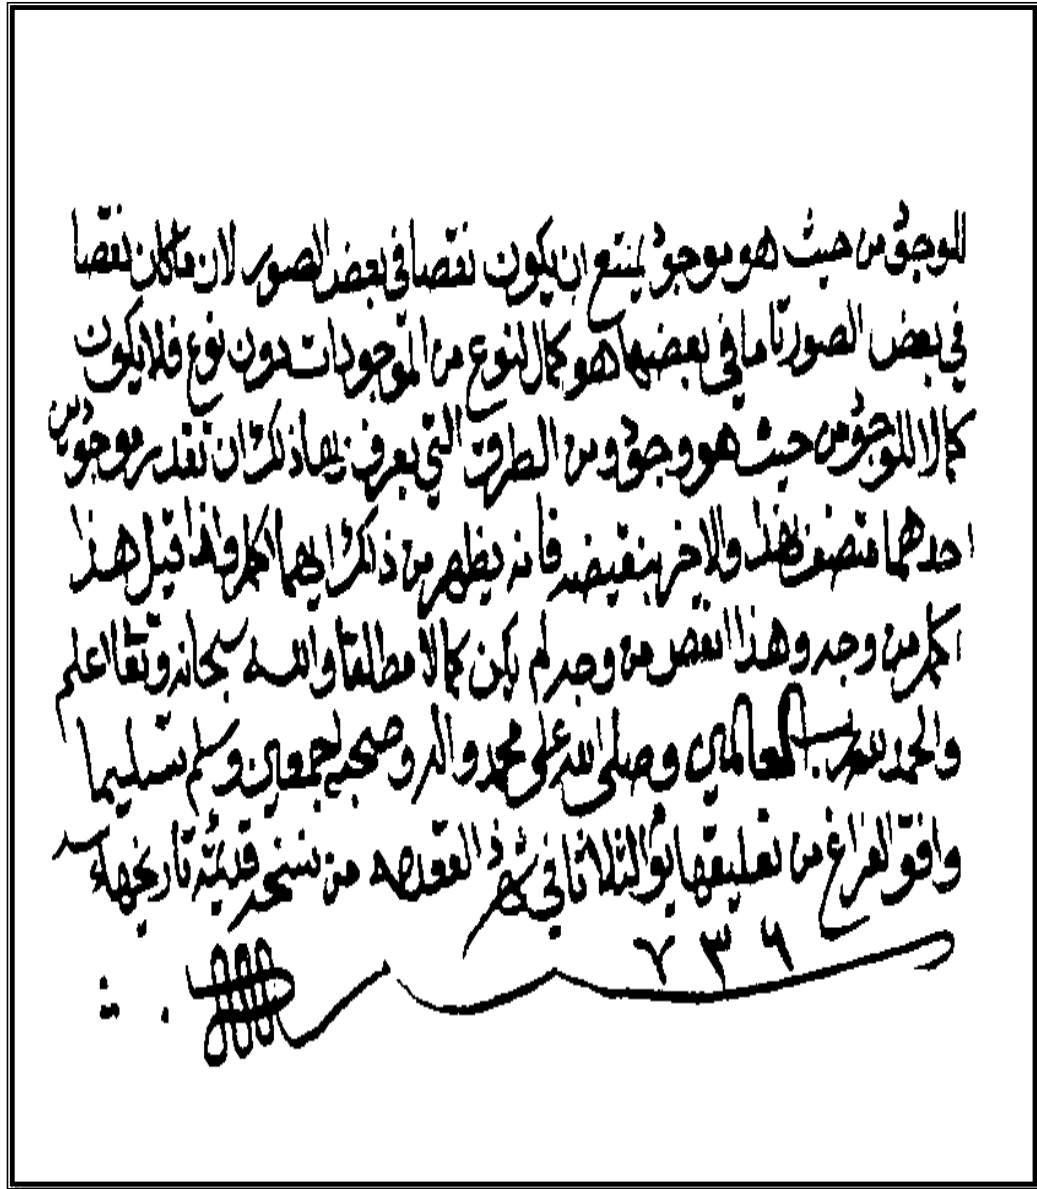 للموجود من حيث هو موجود يمتنع ان يكون نقصا في بعض الصور لان ما كان نقصا
في بعض الصور تاما في بعضها هو كمال لنوع من الموجودات دون نوع فلا يكون
كمالا للموجود من حيث هو وجود ومن الطرق التي يعرف بها ذلك ان تقدر موجودين
احدهما متصف بهذا والاخر بنقيضه فانه يظهر من ذلك ايهما اكمل واذا قيل هذا
اكمل من وجه وهذا انقص من وجه لم يكن كمالا مطلقا والله سبحانه وتعالى اعلم
والحمد لله رب العالمين وصلى الله على محمد واله وصحبه اجمعين وسلم تسليما
وافق الفراغ من تعليقها يوم الثلاثا في شهر ذا القعده من نسخة قديمة تاريخها سنه
٧٣٦